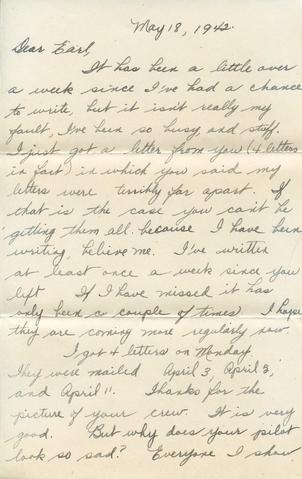 May 18, 1942.
Dear Earl,
It has been a little over
a week since I've had a chance
to write, but it isn't really my
fault, I've been so busy, and stuff.
I just got a letter from you (4 letters
in fact) in which you said my
letters were terribly far apart. If
that is the case you can't be
getting them all because I have been
writing, believe me. I've written
at least once a week since you
left. If I have missed it has
only been a couple of times. I hope
they are coming more regularly now.
I got 4 letters on Monday.
They were mailed April 3, April 3,
and April 11. Thanks for the
picture of your crew. It is very
good. But why does your pilot
look so sad? Everyone I show